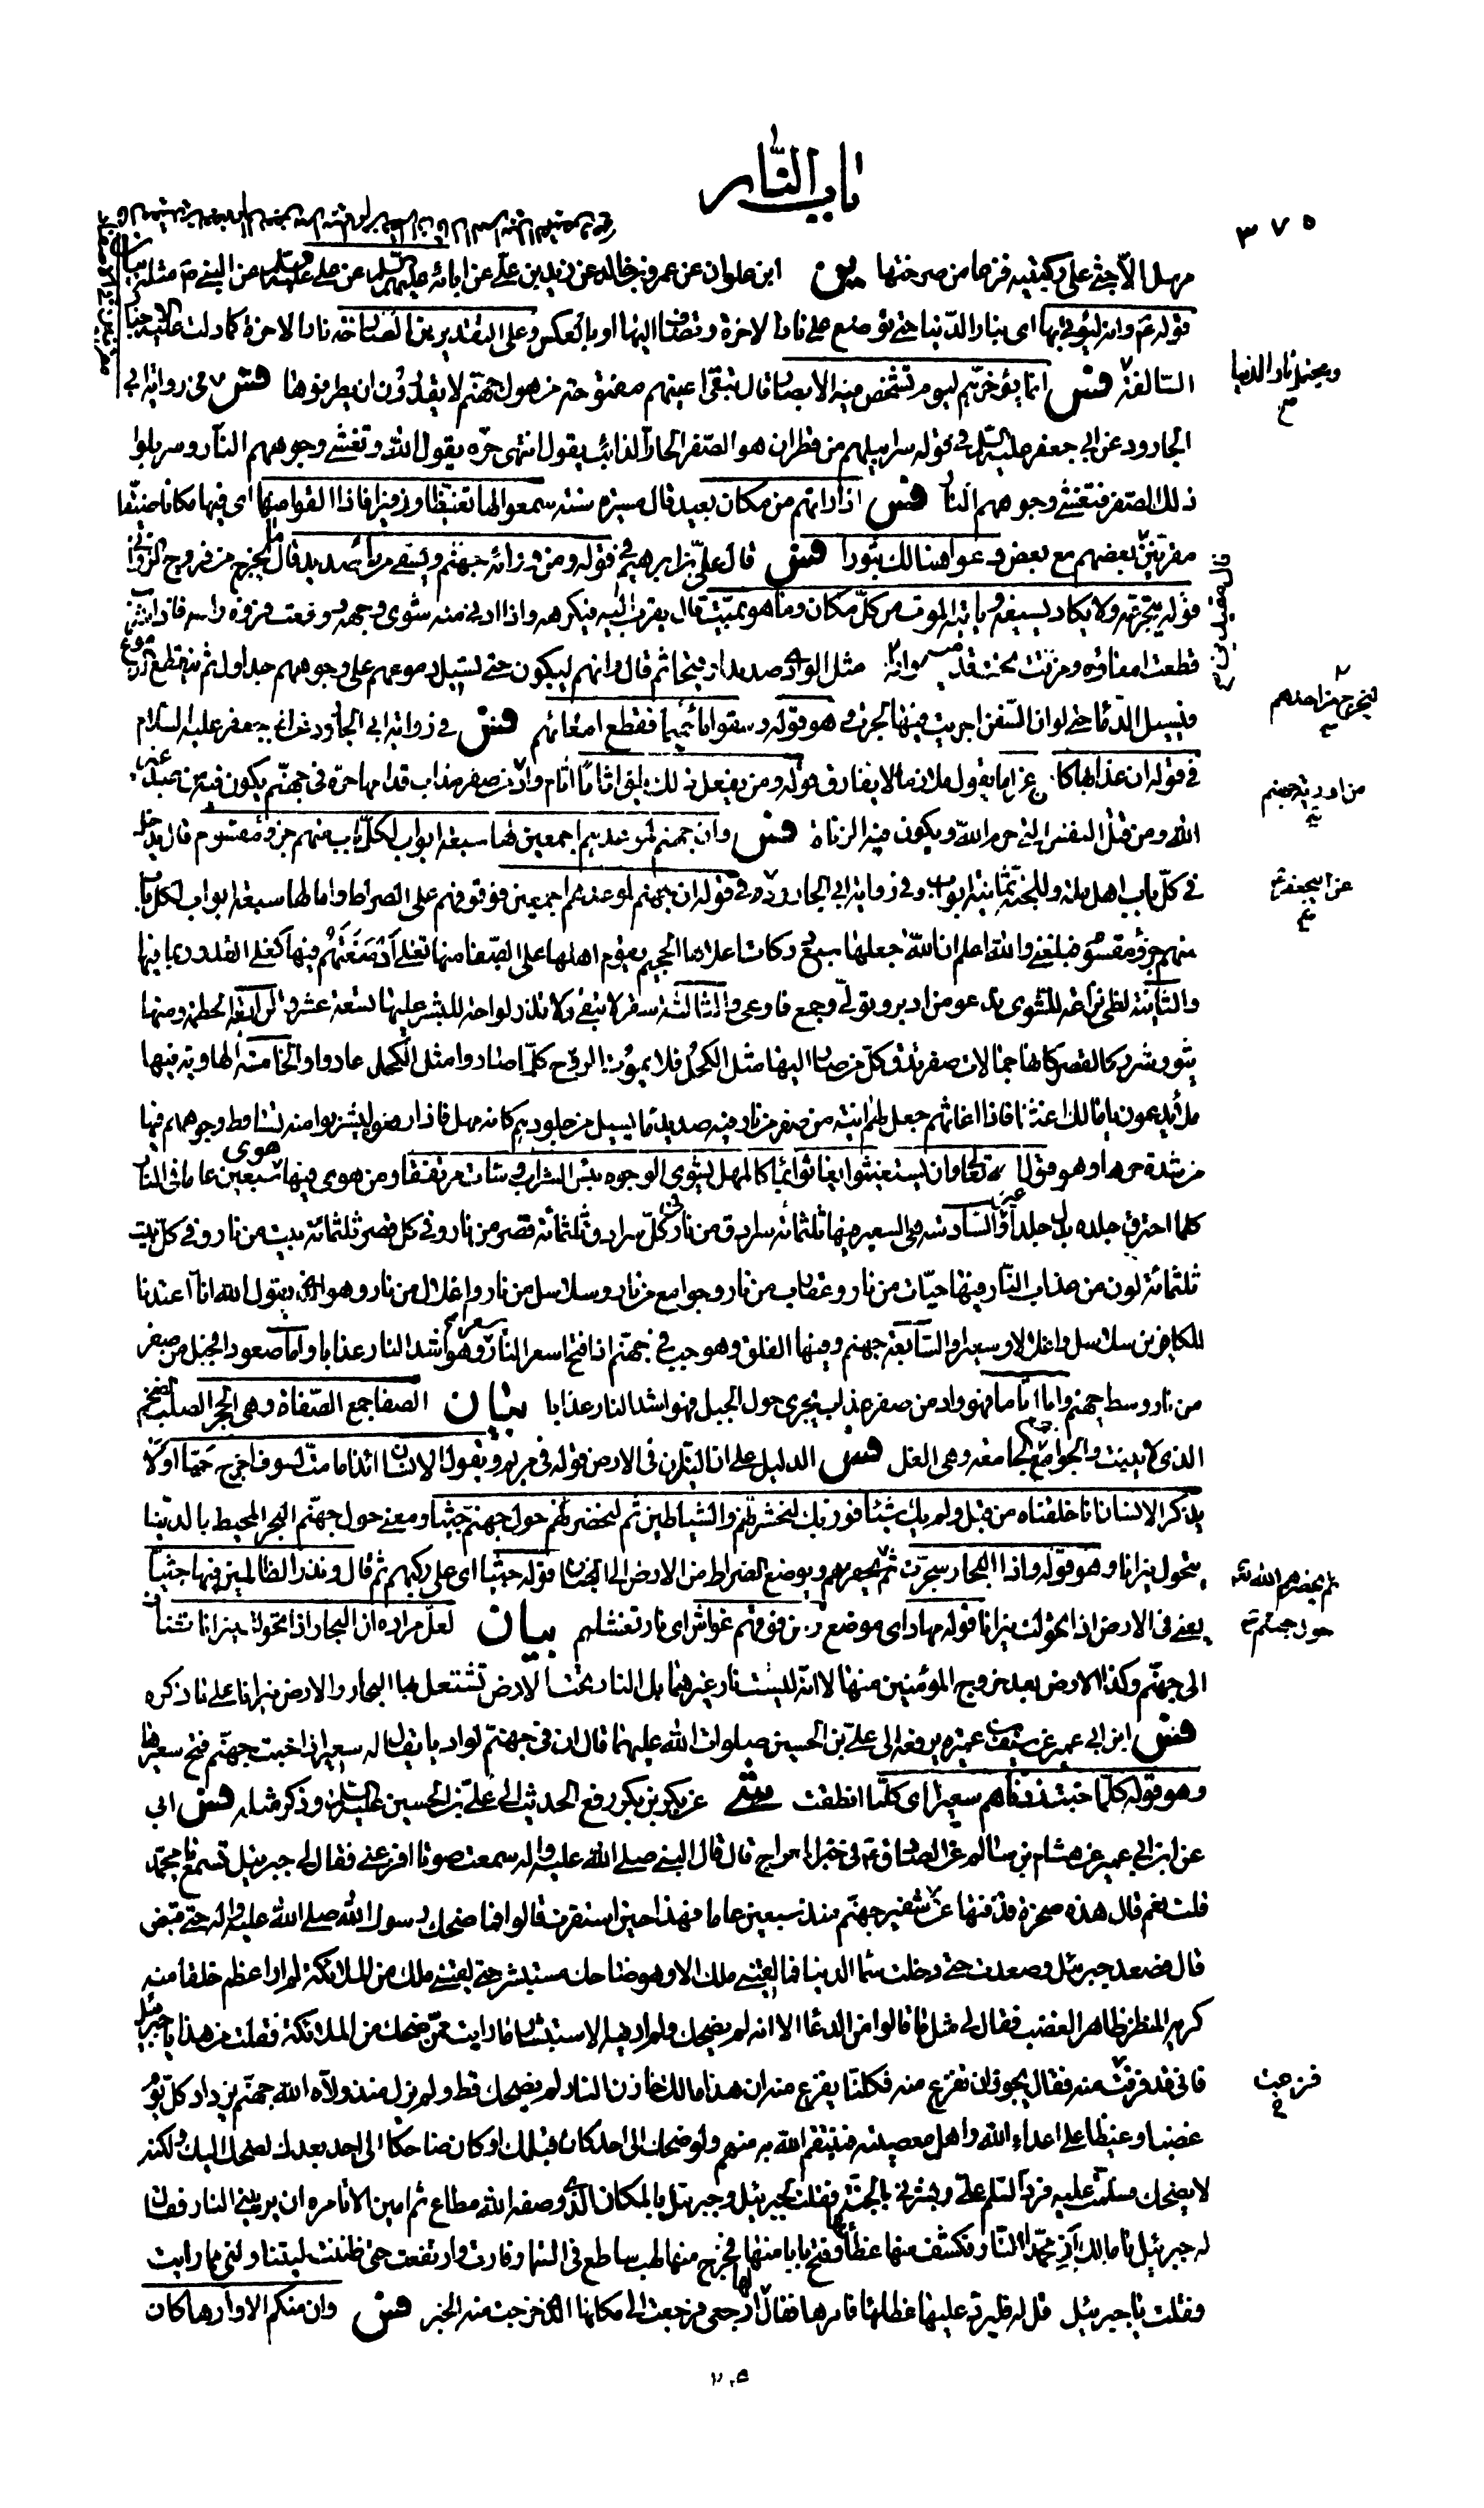 باب النار
٣٧٥
مرسل الا جثى على ركبتيه فزعا من صرختها ين ابن علوان عن عمرو بن خالد عن زيد بن علي عن ابائه عليهم السلم عن علي عن النبي ص مثله بيان
قوله ع وانه ليؤتى بها اى بنار الدنيا حتى توضع على نار الاخرة وتضاف اليها او بالعكس وعلى التقديرين الصارخة نار الاخرة كما دلت عليه
السالفة فس انما يؤخرهم ليوم تشخص فيه الابصار قال تبقى اعينهم مفتوحة من هول جهنم لا يقدرون ان يطرفوها فس فى رواية ابى
ويحتمل نار الدنيا
الجارود عن ابى جعفر عليه السلم فى قوله سرابيلهم من قطران هو الصفر الحار الذائب يقول انتهى حره يقول الله وتغشى وجوههم النار وسربلوا
ذلك الصفر فتغشى وجوههم النار فس اذا راتهم من مكان بعيد قال مسيرة سنة سمعوا لها تغيظا وزفيرا فاذا القوا منها اى فيها مكانا ضيقا
مقرنين بعضهم مع بعض دعوا هنالك ثبورا فس قال علي بن ابرهيم فى قوله ومن ورائه جهنم ويسقى من ماء صديد قال ما يخرج من فروج الزوانى
قوله يتجرعه ولا يكاد يسيغه وياتيه الموت من كل مكان وما هو بميت قال يقرب اليه فيكرهه واذا ادنى منه شوى وجهه ووقعت فروة راسه فاذا شرب
قطعت امعاؤه ومزقت تحت قدميه وانه مثل الوادى صديدا وقيحا ثم قال وانهم ليبكون حتى تسيل دموعهم على وجوههم جداول ثم ينقطع الدموع
ليخرج من احدهم
فيسيل الدماء حتى لو ان السفن اجريت فيها لجرت وهو قوله وسقوا ماء حميما فقطع امعائهم فس فى رواية ابى الجارود عن ابى جعفر عليه السلام
فى قوله ان عذابها كان غراما يقول ملازما لا يفارق قوله ومن يفعل ذلك يلق اثاما اثام واد من صفر مذاب قدامها حرة فى جهنم يكون فيه من عبد غير
من اودية جهنم
الله ومن قتل النفس التى حرم الله ويكون فيه الزناة فس وان جهنم لموعدهم اجمعين لها سبعة ابواب لكل باب منهم جزء مقسوم قال يدخل
فى كل باب اهل ملة وللجنة ثمانية ابواب وفى رواية ابى الجارود فى قوله ان جهنم لموعدهم اجمعين فوقوفهم على الصراط واما لها سبعة ابواب لكل باب
عن ابى جعفر ع
منهم جزء مقسوم فبلغنى والله اعلم ان الله جعلها سبع دركات اعلاها الجحيم يقوم اهلها على الصفا منها تغلى ادمغتهم فيها كغلى القدور بما فيها
والثانية لظى نزاعة للشوى تدعو من ادبر وتولى وجمع فاوعى والثالثة سقر لا تبقى ولا تذر لواحة للبشر عليها تسعة عشر والرابعة الحطمة ومنها
يثور شرر كالقصر كانها جمالات صفر تدق كل من صار اليها مثل الكحل فلا يموت الروح كلما صاروا مثل الكحل عادوا والخامسة الهاوية فيها
ملأ يدعون يا مالك اغثنا فاذا اغاثهم جعل لهم انية من صفر من نار فيه صديد ماء يسيل من جلودهم كانه مهل فاذا رفعوه ليشربوا منه تساقط وجوههم فيها
من شدة حرها وهو قول الله تعالى وان يستغيثوا يغاثوا بماء كالمهل يشوى الوجوه بئس الشراب وساءت مرتفقا ومن هوى فيها هوى سبعين عاما فى النار
كلما احترق جلده بدل جلدا غيره والسادسة هى السعير فيها ثلثمائة سرادق من نار فى كل سرادق ثلثمائة قصر من نار وفى كل قصر ثلثمائة بيت من نار وفى كل بيت
ثلثمائة لون من عذاب النار فيها حيات من نار وعقارب من نار وجوامع من نار وسلاسل من نار واغلال من نار وهو الذى يقول الله انا اعتدنا
للكافرين سلاسل واغلالا وسعيرا والسابعة جهنم وفيها الفلق وهو جب فى جهنم اذا فتح اسعر النار سعرا وهو اشد النار عذابا واما صعود الجبل من صفر
من نار وسط جهنم واما اثاما فهو واد من صفر مذاب يجرى حول الجبل فهو اشد النار عذابا بيان الصفا جمع الصفاة وهى الحجر الصلد الضخم
الذى لا ينبت والجوامع جمع الجامعة وهى الغل فس الدليل على ان النيران فى الارض قوله فى مريم ويقول الانسان ائذا ما مت لسوف اخرج حيا اولا
يذكر الانسان انا خلقناه من قبل ولم يك شيئا فوربك لنحشرنهم والشياطين ثم لنحضرنهم حول جهنم جثيا ومعنى حول جهنم البحر المحيط بالدنيا
يتحول نيرانا وهو قوله واذا البحار سجرت ثم يحضرهم ويوضع الصراط من الارض الى الجنان قوله جثيا اى على ركبهم ثم قال ونذر الظالمين فيها جثيا
ثم يحضرهم الله حول جهنم
يعنى فى الارض اذا تحولت نيرانا قوله مهاد اى موضع ومن فوقهم غواش اى نار تغشاهم بيان لعل مراده ان البحار اذا تحولت نيرانا تضاف
الى جهنم وكذا الارض بعد خروج المؤمنين منها لا انه ليست نار غيرهما بل النار تحت الارض تشتعل بها البحار والارض نيرانا على ما ذكره
فس ابن ابى عمير عن سيف بن عميرة يرفعه الى علي بن الحسين صلوات الله عليهما قال ان فى جهنم لواديا يقال له سعير اذا خبت جهنم فتح سعيرها
وهو قوله كلما خبت زدناهم سعيرا اى كلما انطفت شى عن بكر بن بكر رفع الحديث الى علي بن الحسين عليه السلم وذكر مثله فس ابى
عن ابن ابى عمير عن هشام بن سالم عن الصادق ع فى خبر المعراج قال قال النبى صلى الله عليه واله سمعت صوتا افزعنى فقال لى جبرئيل تسمع يا محمد
قلت نعم قال هذه صخرة قذفتها عن شفير جهنم منذ سبعين عاما فهذا حين استقرت قالوا فما ضحك رسول الله صلى الله عليه واله حتى قبض
قال فصعد جبرئيل وصعدت حتى دخلت سماء الدنيا فما لقينى ملك الا وهو ضاحك مستبشر حتى لقينى ملك من الملائكة لم ار اعظم خلقا منه
كريه المنظر ظاهر الغضب فقال لى مثل ما قالوا من الدعاء الا انه لم يضحك ولم ار فيه الاستبشار ما رايت ممن ضحك من الملائكة فقلت من هذا يا جبرئيل
فانى قد فزعت منه فقال يجوز ان تفزع منه فكلنا يفزع منه ان هذا مالك خازن النار لم يضحك قط ولم يزل منذ ولاه الله جهنم يزداد كل يوم
غضبا وغيظا على اعداء الله واهل معصيته فينتقم الله به منهم ولو ضحك الى احد كان قبلك او كان ضاحكا الى احد بعدك لضحك اليك ولكنه
لا يضحك فسلمت عليه فرد السلم علي وبشرنى بالجنة فقلت لجبرئيل وجبرئيل بالمكان الذى وصفه الله مطاع ثم امين الا تامره ان يرينى النار فقال
له جبرئيل يا مالك ار محمدا النار فكشف عنها غطاءها وفتح بابا منها فخرج منها لهب ساطع فى السماء وفارت وارتفعت حتى ظننت ليتناولنى مما رايت
فقلت يا جبرئيل قل له فليرد عليها غطاءها فامرها فقال لها ارجعى فرجعت الى مكانها الذى خرجت منه الخبر فس وان منكم الا واردها كان